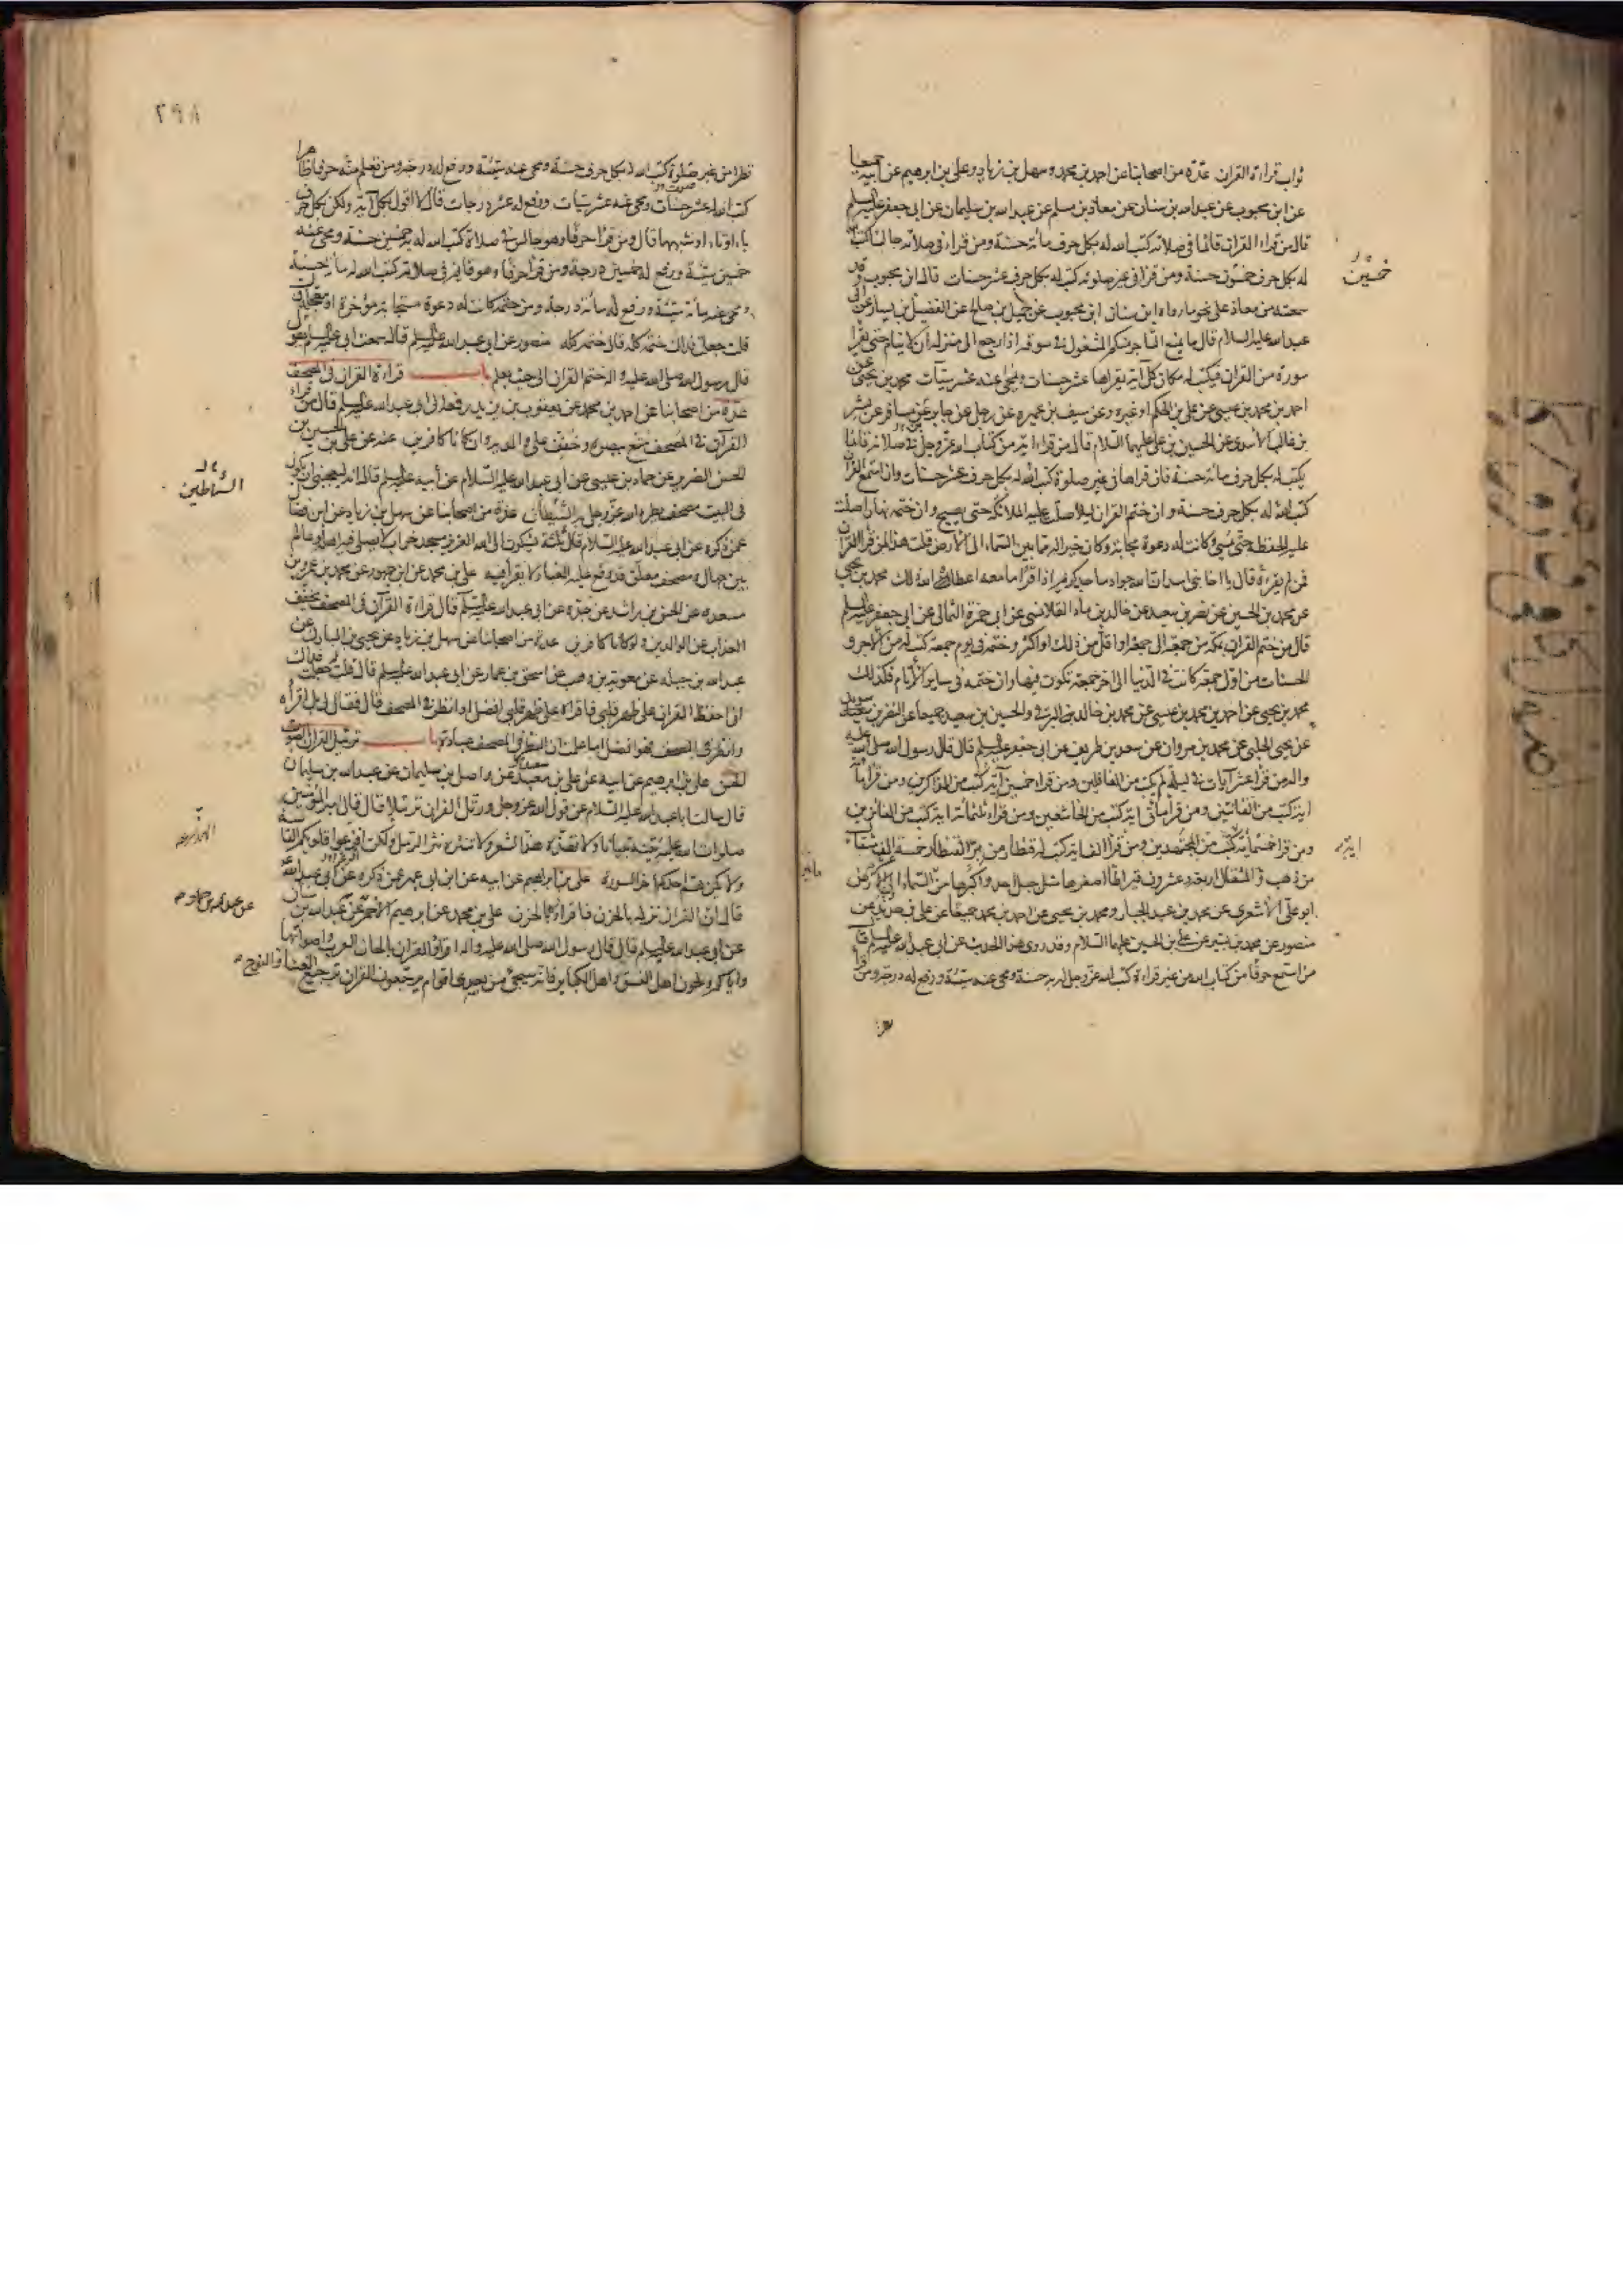 ثواب قراءة القران عدّة من اصحابنا عن احمد بن محمد وسهل بن زياد وعلى بن ابرهيم عن ابيه جميعا
عن ابن محبوب عن عبدالله بن سنان عن معاذ بن مسلم عن عبدالله بن سليمان عن ابى جعفر عليه السلم
قال من قراء القران قائما فى صلاته كتب الله له بكل حرف مائة حسنة ومن قراء فى صلاته جالسا كتب الله
له بكل حرف خمسون حسنة ومن قرا فى غير صلوته كتب له بكل حرف عشر حسنات قال ابن محبوب وقد
سمعته من معاذ على نحو ما رواه ابن سنان ابن محبوب عن جميل بن صالح عن الفضيل بن يسار عن ابى
عبدالله عليه السلام قال ما يمنع التاجر منكم المشغول فى سوقه اذا رجع الى منزله ان لا ينام حتى يقرا
سورة من القران فيكتب له مكان كل آية يقراها عشر حسنات ويمحى عنه عشر سيّآت محمد بن يحيى عن
احمد بن محمد بن عيسى عن على بن الحكم او غيره عن سيف بن عميره عن رجل عن جابر عن مسافر عن بشر
بن غالب الأسدى عن الحسين بن على عليهما السلام قال من قراء اية من كتاب الله عزّ وجلّ فى صلاته قائما
يكتب له بكل حرف مائة حسنة فان قراها فى غير صلوة كتب الله له بكل حرف عشر حسنات وان استمع القران
كتب الله له بكل حرف حسنة وان ختم القران ليلا صلّت عليه الملائكة حتى يصبح وان ختمه نهارا صلت
عليه الحفظه حتى يمسى وكانت له دعوة مجابة وكان خيرا له مما بين السماء الى الارض قلت هذا لمن قرا القران
فمن لم يقرءه قال يا اخا بنى اسد ان الله جواد ماجد كريم اذا قرا ما معه اعطاه الله ذلك محمد بن يحيى
عن محمد بن الحسين عن نضر بن سعيد عن خالد بن ماد القلانسى عن ابى حمزة الثمالى عن ابى جعفر عليه السلم
قال من ختم القران بمكة من جمعة الى جمعة او اقل من ذلك او اكثر وختمه فى يوم جمعة كتب له من الاجر و
الحسنات من اوّل جمعة كانت فى الدنيا الى اخر جمعة تكون فيها وان ختمه فى ساير الأيام فكذلك
محمد بن يحيى عن احمد بن محمد بن عيسى عن محمد بن خالد البرقى والحسين بن سعيد جميعا عن النضر بن سويد
عن يحيى الحلبى عن محمد بن مروان عن سعد بن طريف عن ابى جعفر عليه السلم قال قال رسول الله صلى الله عليه
واله من قرا عشر آيات فى ليلة لم يكتب من الغافلين ومن قراء خمسين آية كتب من الذاكرين ومن قرا مأة
اية كتب من القانتين ومن قرا مأتى اية كتب من الخاشعين ومن قراء ثلثمائة اية كتب من الفائزين
ومن قرا خمسمائة كتب من المجتهدين ومن قرا الف اية كتب له قنطار من برّ القنطار خمسة الف مثقال
من ذهب والمثقال اربعة وعشرون قيراطا اصغرها مثل جبل احد واكبرها ما بين السماء الى الارض
ابو على الأشعرى عن محمد بن عبد الجبار ومحمد بن يحيى عن احمد بن محمد جميعا عن على بن حديد عن
منصور عن محمد بن بشير عن على بن الحسين عليهما السلام وقد روى هذا الحديث عن ابى عبدالله عليه السلم قال
من استمع حرفا من كتاب الله من غير قراءة كتب الله عزّ وجل له به حسنة ومحى عنه سيّئة ورفع له درجة ومن قرا
خمسين
اية
٢٩٨
نظرا من غير صلوة كتب الله له بكل حرف حسنة ومحى عنه سيّئة ورفع له درجة ومن تعلم منه حرفا ظاهرا
كتب الله له عشر حسنات ومحى عنه عشر سيّآت ورفع له عشر درجات قال لا اقول بكل آية ولكن بكل حرف
باء او تاء او شبههما قال ومن قرا حرفا وهو جالس فى صلاة كتب الله له به خمسين حسنة ومحى عنه
خمسين سيّئة ورفع له خمسين درجة ومن قرا حرفا وهو قايم فى صلاته كتب الله له مائة حسنة
ومحى عنه مائة سيّئة ورفع له مائة درجة ومن ختمه كانت له دعوة مستجابة مؤخرة او معجلة قال
قلت جعلت فداك ختمه كله قال ختمه كله منصور عن ابى عبدالله عليه السلم قال سمعت ابى عليه السلم يقول
قال رسول الله صلى الله عليه واله ختم القران الى حيث يعلم باب قراءة القران فى المصحف
عدّة من اصحابنا عن احمد بن محمد عن يعقوب بن يزيد رفعه الى ابى عبدالله عليه السلم قال من قراء
القرآن فى المصحف متّع ببصره وخفّف على والديه وان كانا كافرين عنه عن على بن الحسين بن
الحسن الضرير عن حماد بن عيسى عن ابى عبدالله عليه السلام عن ابيه عليه السلم قال انه ليعجبنى ان يكون
فى البيت مصحف يطرد الله عزّ وجل به الشيطان عدّة من اصحابنا عن سهل بن زياد عن ابن فضال
عمن ذكره عن ابى عبدالله عليه السلام قال ثلثة يشكون الى الله العزيز مسجد خراب لا يصلى فيه اهله وعالم
بين جهال ومصحف معلّق قد وقع عليه الغبار لا يقرا فيه على بن محمد عن ابن جمهور عن محمد بن عمر بن
مسعده عن الحسن بن راشد عن جدّه عن ابى عبدالله عليه السلم قال قراءة القرآن فى المصحف يخفّف
العذاب عن الوالدين ولو كانا كافرين عدة من اصحابنا عن سهل بن زياد عن يحيى بن المبارك عن
عبدالله بن جبلة عن معوية بن وهب عن اسحق بن عمار عن ابى عبدالله عليه السلم قال قلت له جعلت فداك
انى احفظ القران على ظهر قلبى فاقراه على ظهر قلبى افضل او انظر فى المصحف قال فقال لى بل اقراه
وانظر فى المصحف فهو افضل اما علمت ان النظر فى المصحف عبادة باب ترتيل القران بالصوت
الحسن على بن ابرهيم عن ابيه عن على بن معبد عن واصل بن سليمان عن عبدالله بن سليمان
قال سالت ابا عبدالله عليه السلام عن قول الله عز وجل ورتل القران ترتيلا قال قال امير المؤمنين
صلوات الله عليه بيّنه تبيانا ولا تهذّه هذّ الشعر ولا تنثره نثر الرمل ولكن افزعوا قلوبكم القاسية
ولا يكن همّ احدكم اخر السورة على بن ابراهيم عن ابيه عن ابن ابى عمير عن ذكره عن ابى عبدالله
قال ان القران نزل بالحزن فاقراءه بالحزن على بن محمد عن ابرهيم الأحمر عن عبدالله بن
عن ابى عبدالله عليه السلم قال قال رسول الله صلى الله عليه واله اقراؤا القران بالحان العرب واصواتها
واياكم ولحون اهل الفسق واهل الكباير فانه سيجئ من بعدى اقوام يرجّعون القران ترجيع الغناء والنوح
الشياطين